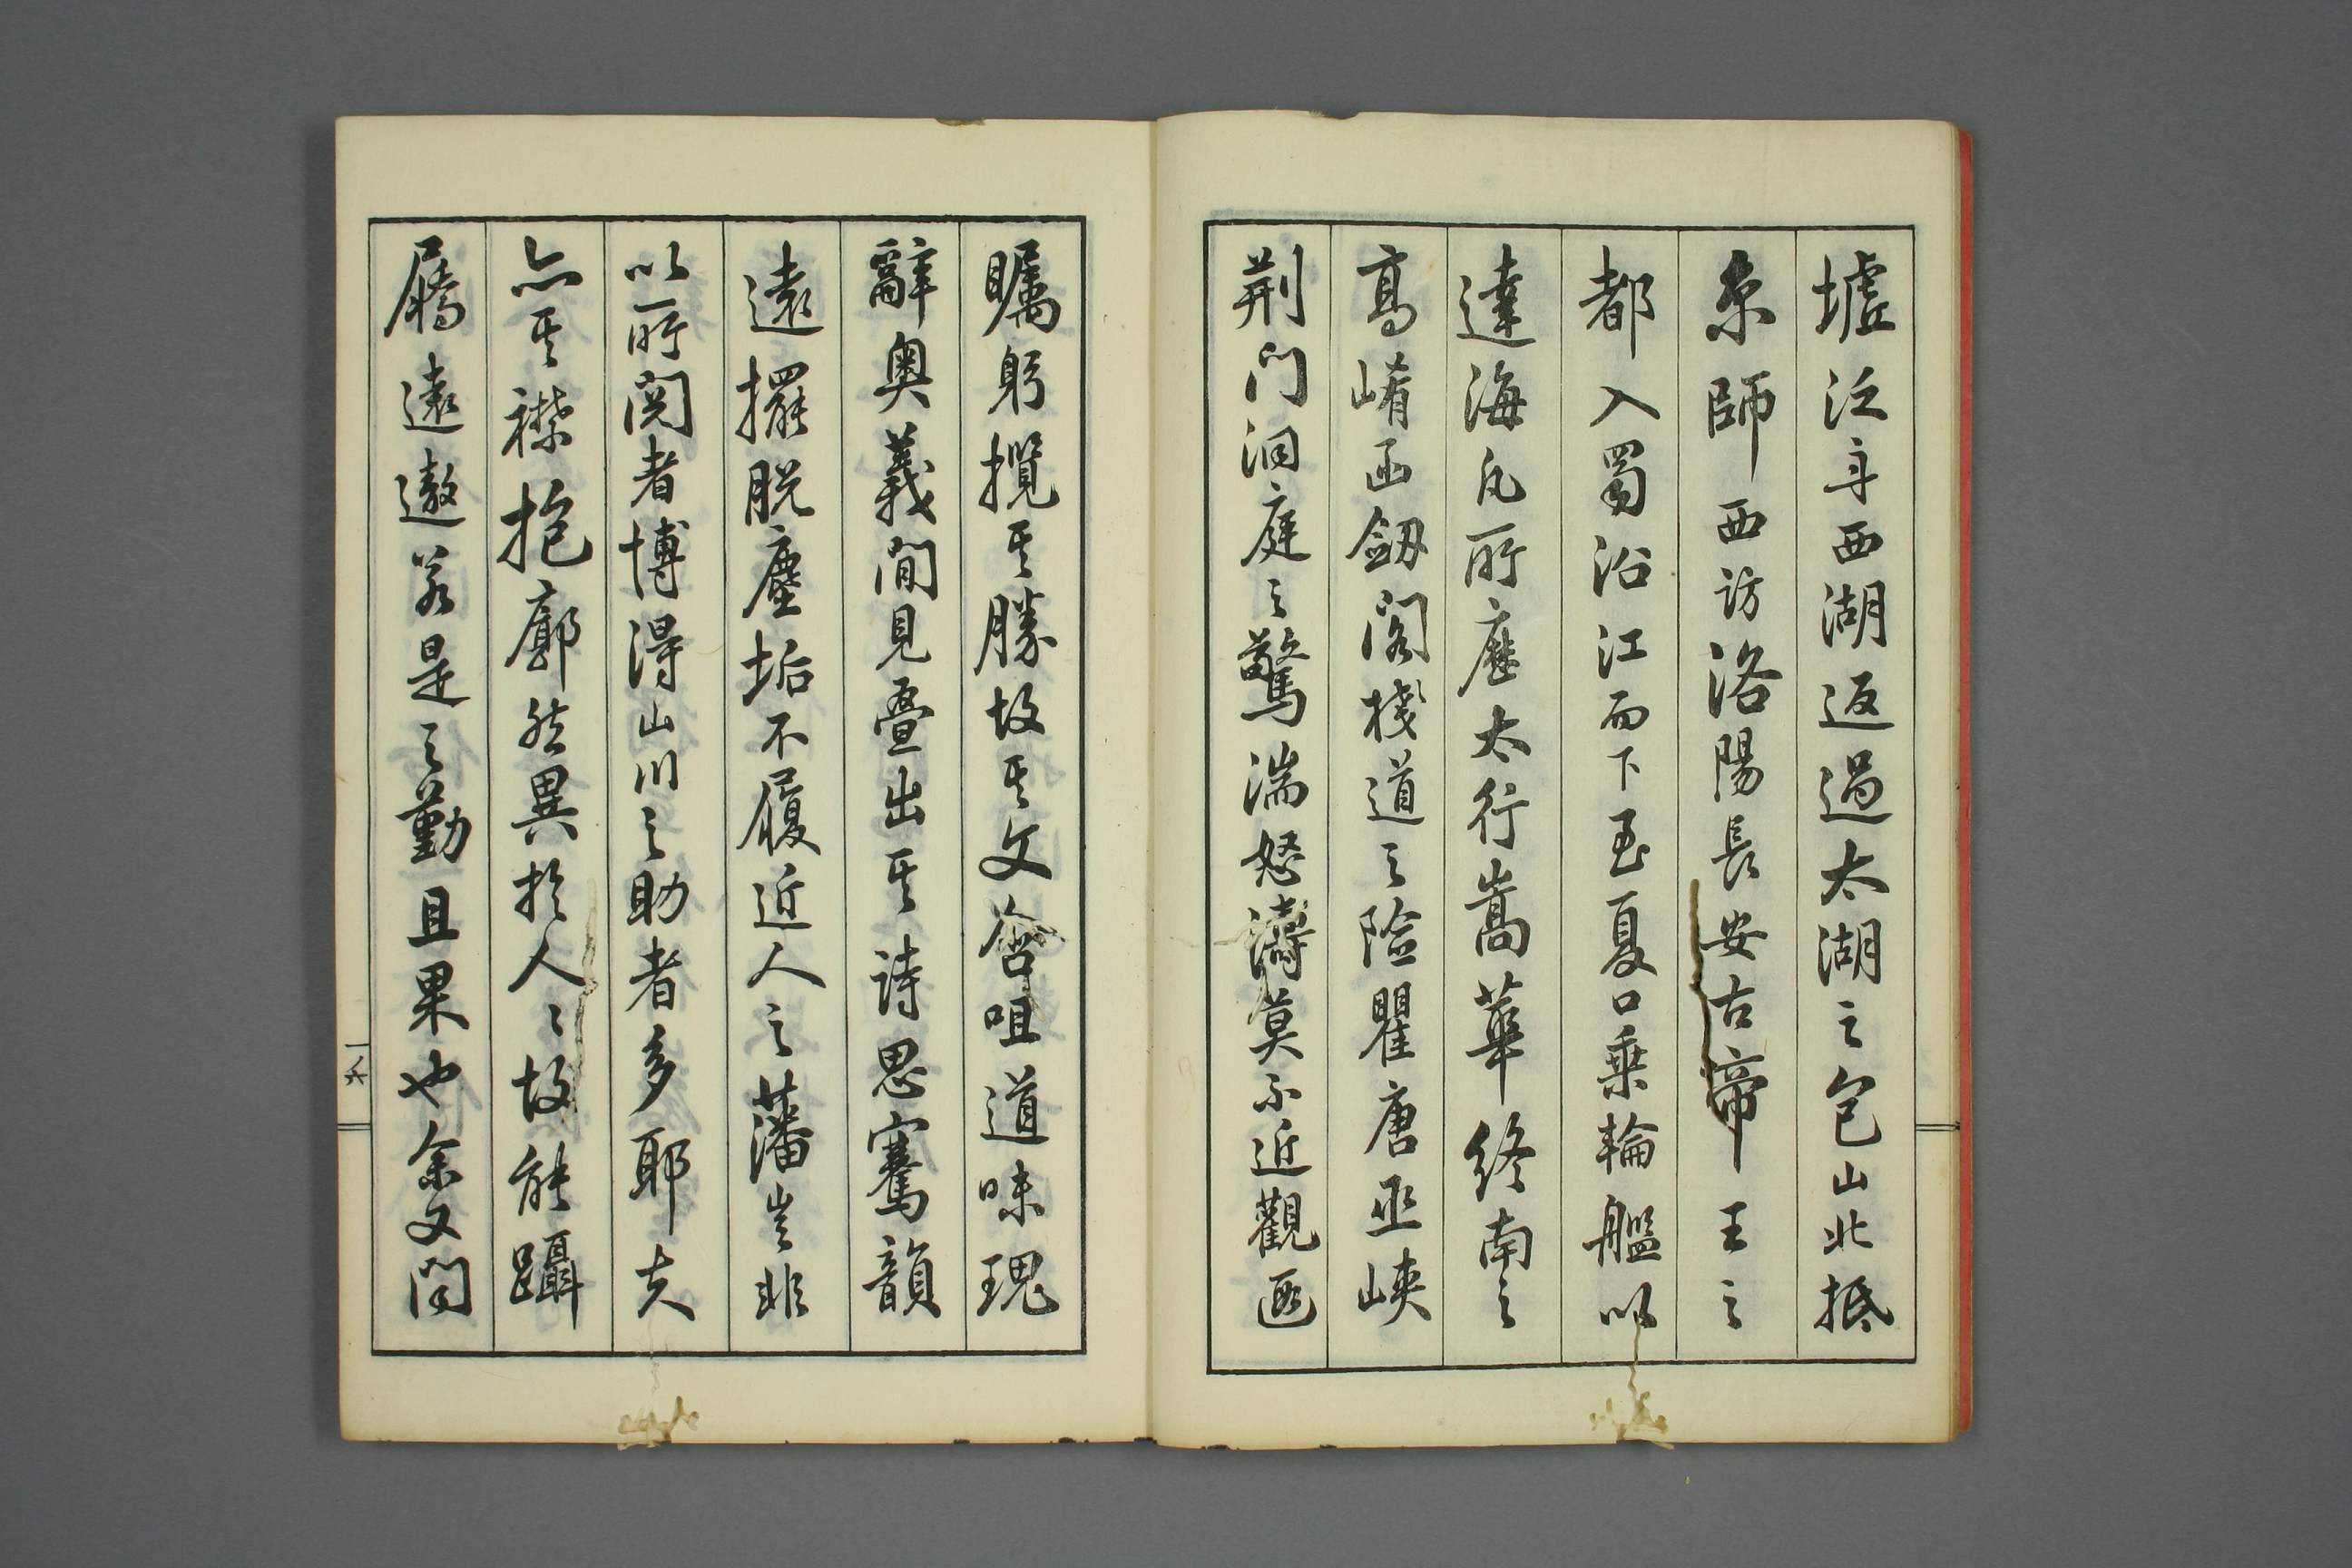 墟泛舟西湖返過太湖之包山北抵
京師西訪洛陽長安古帝王之
都入蜀沿江而下至夏口乘輪艦以
達海凡所歷太行嵩華終南之
高崤函劔閣棧道之險瞿唐巫峽
荊门洞庭之驚湍怒濤莫不近觀遐
矚躬攬其勝故其文含咀道味瑰
辭奧義間見疊出其詩思騫韻
遠擺脱塵垢不履近人之藩豈非
以所閲者博得山川之助者多耶夫
亦其襟抱廓然異於人人故能躡
屩遠遨若是之勤且果也余又聞
一六